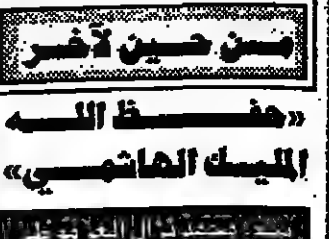 من حين لآخر
«حفظ الله
المليك الهاشمي»